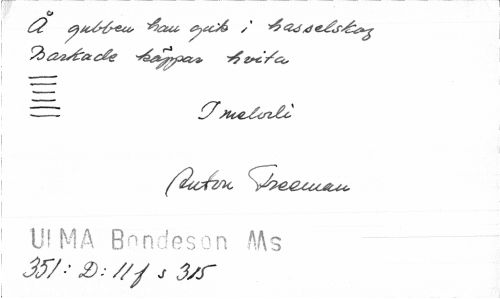 Å gubben han gick i hasselskog
Barkade käppar hvita
1 melodi
Anton Freeman
ULMA Bondeson Ms
351: D: 11 f s 315